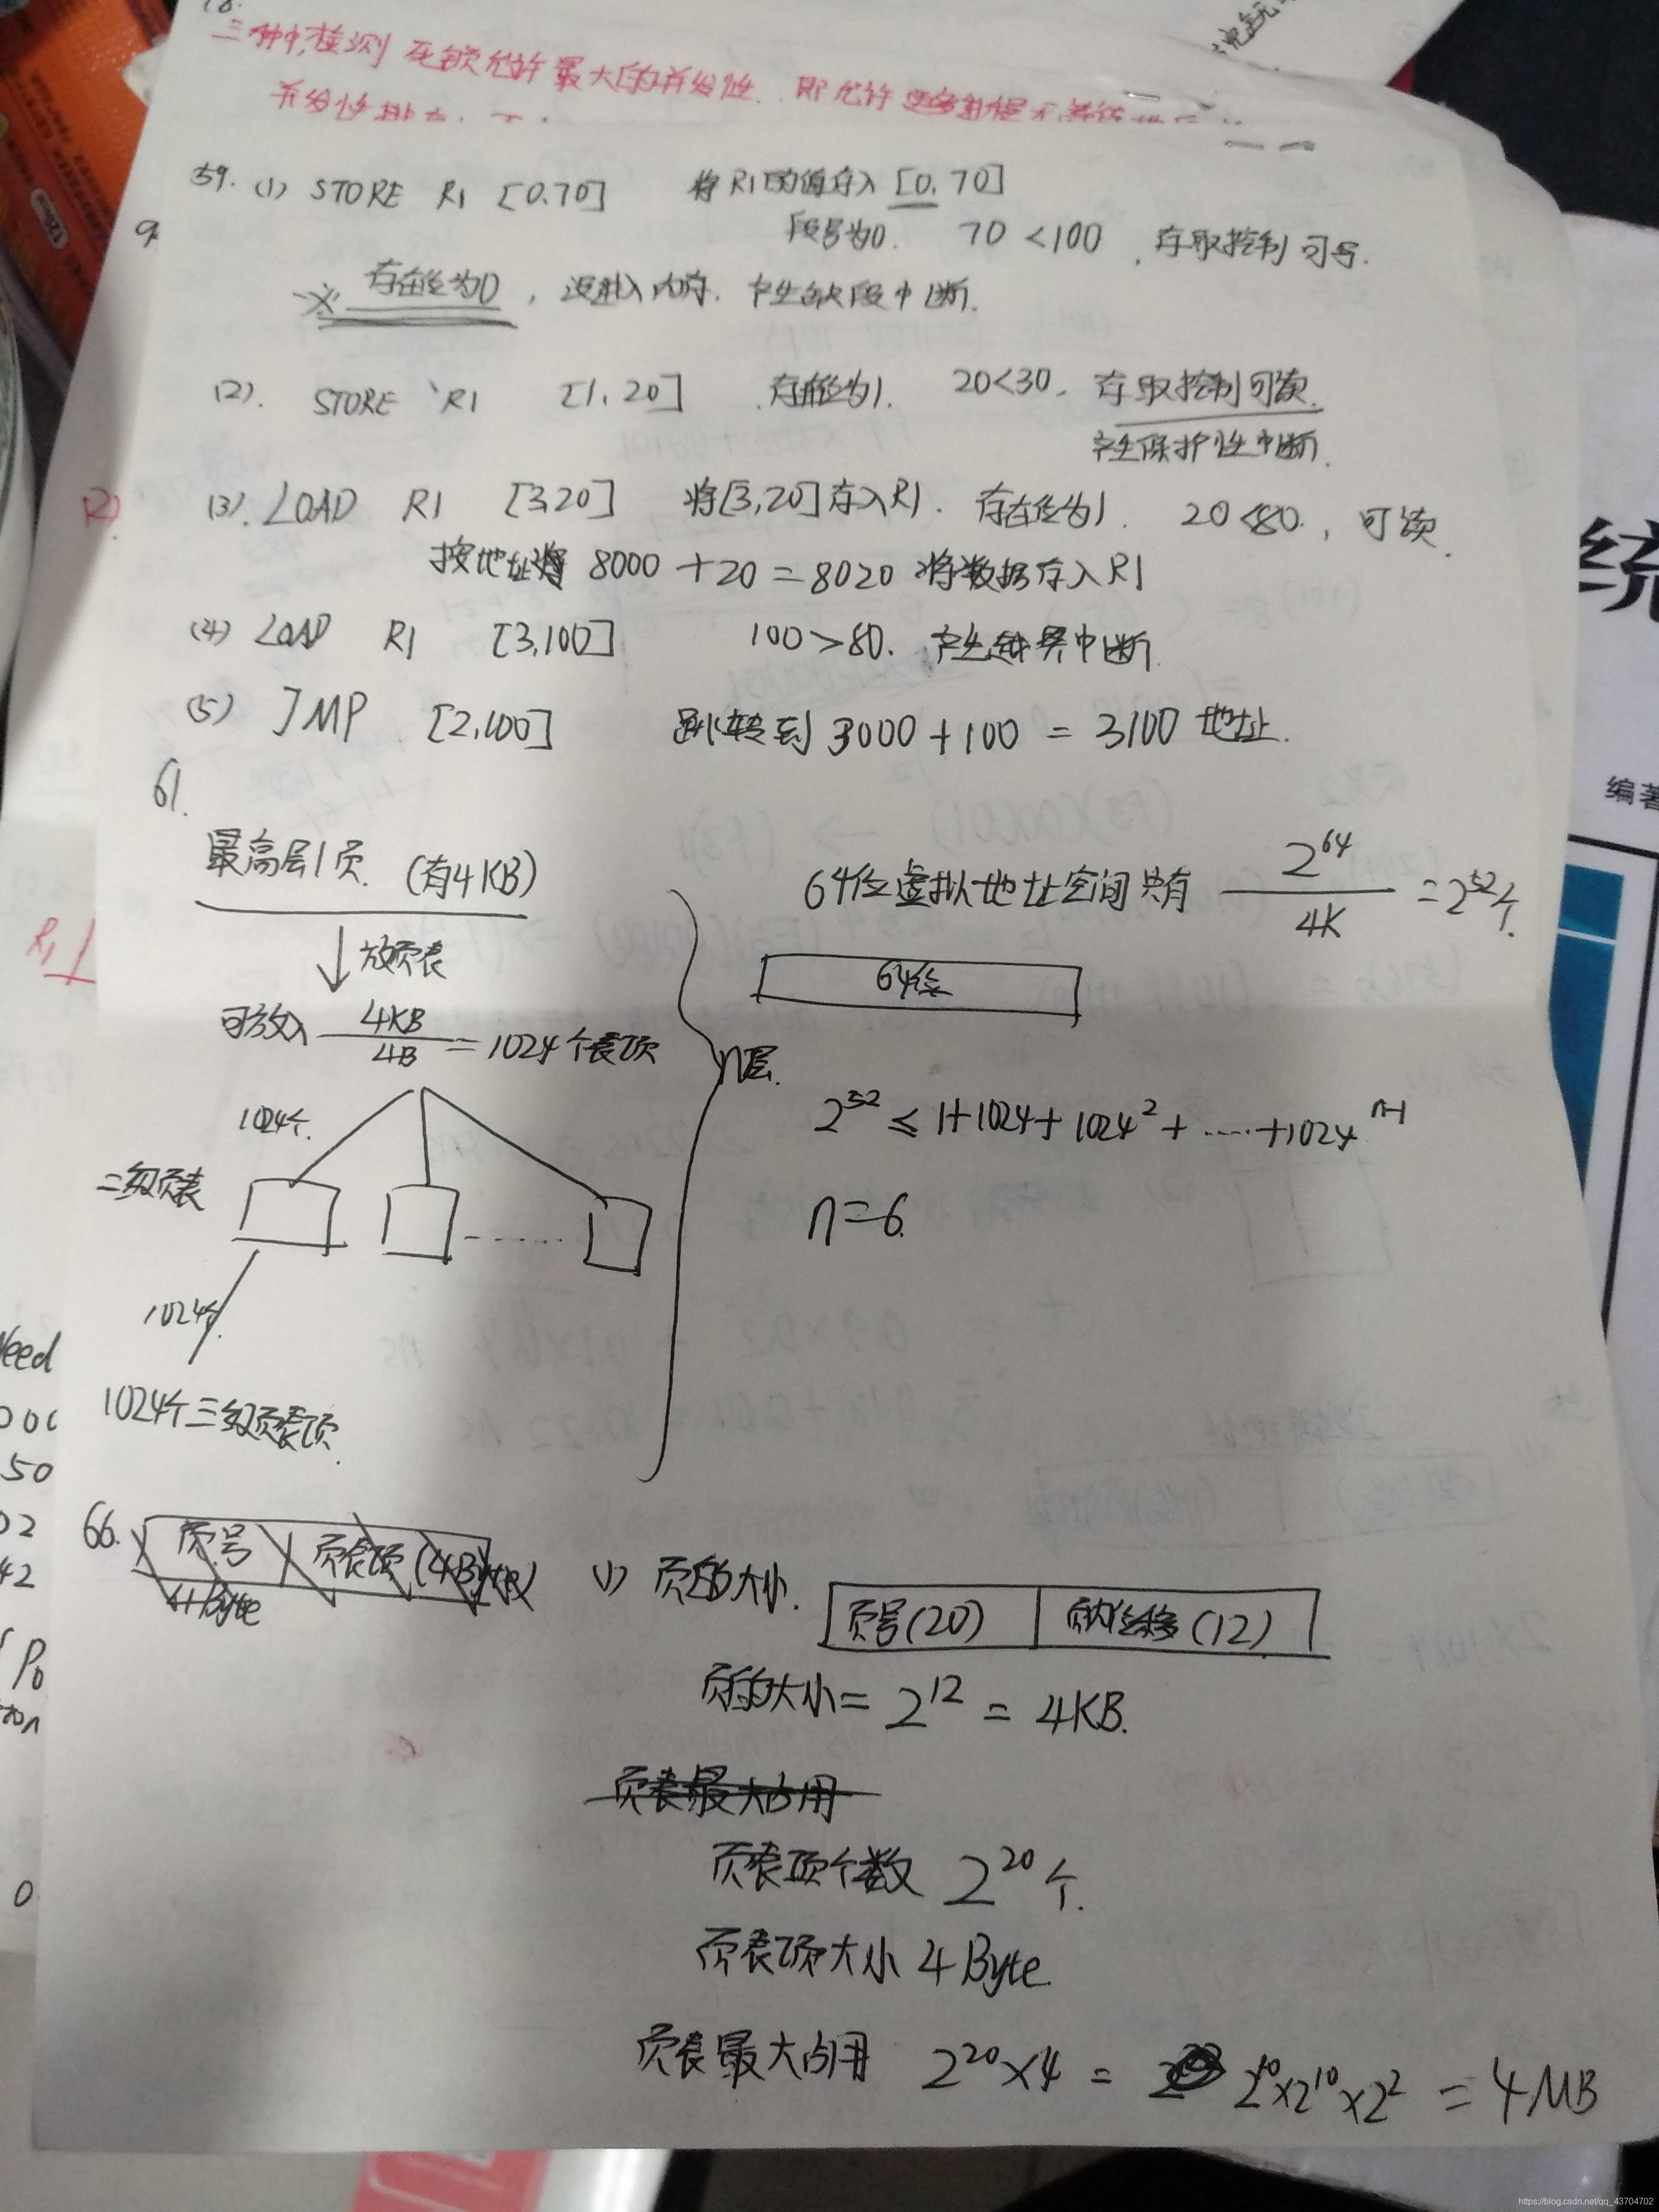 18.
三种中,检测死锁允许最大的并发性. 即允许更多进程无等待
并发性排
59. (1) STORE R1 [0,70] 将R1的值存入 [0,70]
段号为0. 70 < 100 , 存取控制可写.
※ 存在位为0 , 没进入内存. 产生缺段中断.
(2). STORE R1 [1,20] 存在位为1. 20<30, 存取控制可读.
产生保护性中断.
(3). LOAD R1 [3,20] 将[3,20]存入R1. 存在位为1. 20<80. , 可读.
按地址将 8000 + 20 = 8020 将数据存入R1
(4) LOAD R1 [3,100] 100 > 80. 产生越界中断.
(5) JMP [2,100] 跳转到 3000 + 100 = 3100 地址.
61.
最高层1页. (有4KB)
放页表
可放入 4KB/4B = 1024个表项
1024个.
二级页表
1024个.
1024个三级页表项.
n层.
64位虚拟地址空间共有 2^64/4K = 2^52个.
64位
2^52 ≤ 1+1024+1024^2+ ····· +1024^n-1
n=6.
66. 页号 页表项 (4Byte)
4Byte
(1) 页的大小.
页号(20) 页内位移(12)
页的大小 = 2^12 = 4KB.
页表最大占用
页表项个数 2^20个.
页表项大小 4Byte.
页表最大占用 2^20×4 = 2^10×2^10×2^2 = 4MB
Need
50
02
42
P0
0
R1
统
编著
https://blog.csdn.net/qq_43704702